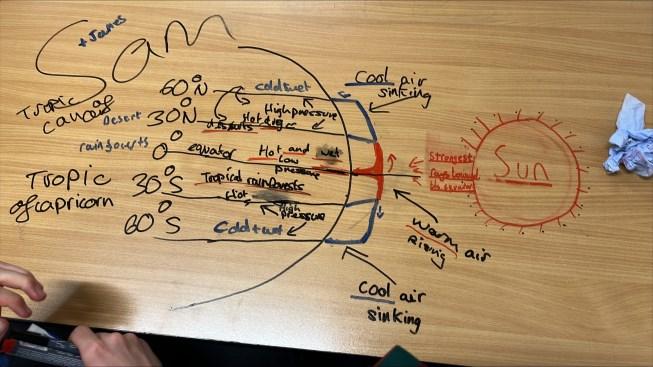 Sam
+ James
60°N
cold+wet
Cool air
sinking
Tropic
of
cancer
Desert
30°N
High pressure
Hot dry
deserts
rainforests
0°
equator
Hot and wet
low
pressure
strongest
rays
Sun
Tropic
of capricorn
30°S
Tropical rainforests
Hot
High
pressure
60°S
Cold+wet
warm air
rising
Cool air
sinking